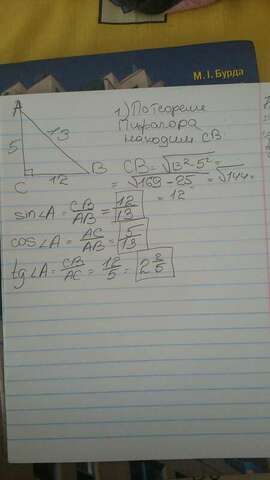 М. І. Бурда
A
13
5
C
12
B
1) По теореме
Пифагора
находим CB.
CB = √13²-5² =
= √169 - 25 = √144 =
= 12
sin∠A = CB/AB = 12/13
cos∠A = AC/AB = 5/13
tg∠A = CB/AC = 12/5 = 2 2/5